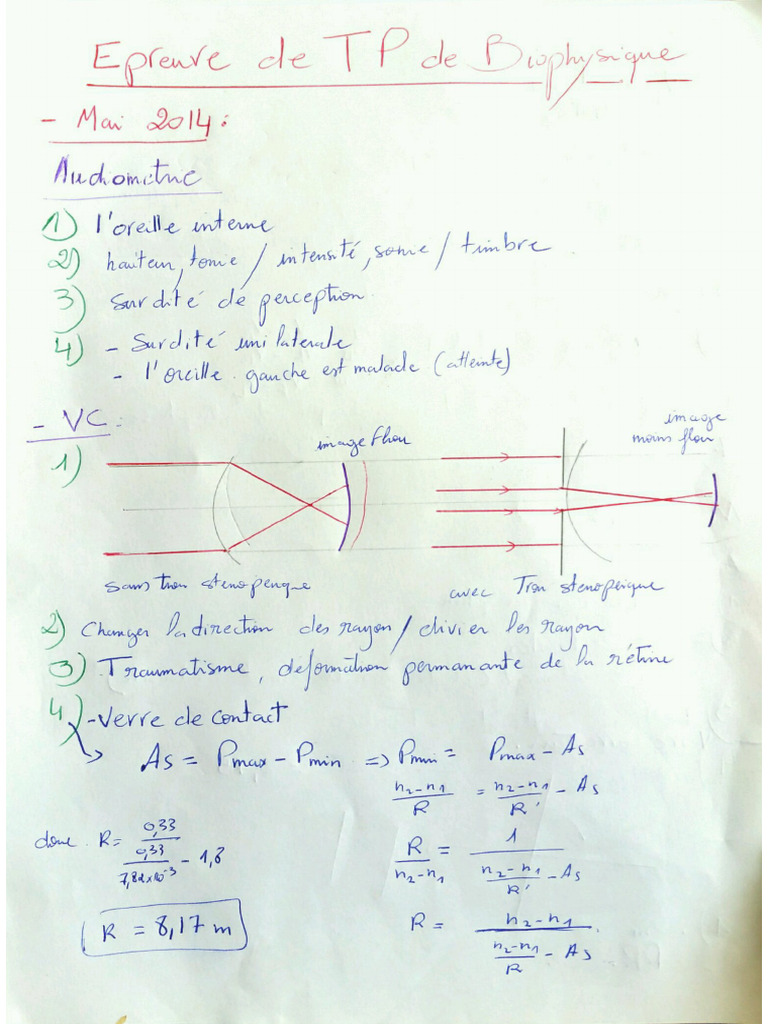 Epreuve de TP de Biophysique
- Mai 2014 :
Audiometrie
1) l'oreille interne
2) hauteur, tonie / intensité, sonie / timbre
3) Surdité de perception
4) - Surdité unilaterale
- l'oreille gauche est malade (atteinte)
- VC :
1)
image flou
image
moins flou
sans trou stenopeique
avec Trou stenopeique
2) Changer la direction des rayon / divier les rayon
3) Traumatisme, déformation permanante de la rétine
4) - Verre de contact
As = Pmax - Pmin => Pmin = Pmax - As
n2-n1/R = n2-n1/R' - As
donc R = 0,33/(0,33/7,82x10^-3 - 1,8)
R/n2-n1 = 1/(n2-n1/R' - As)
R = 8,17 m
R = n2-n1/(n2-n1/R - As)